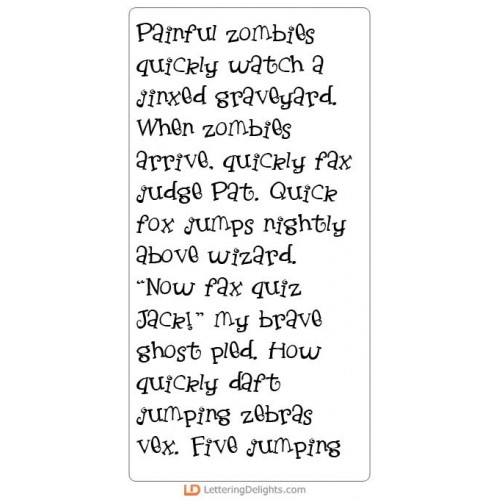 Painful zombies
quickly watch a
jinxed graveyard.
When zombies
arrive, quickly fax
judge Pat. Quick
fox jumps nightly
above wizard.
"Now fax quiz
Jack!" my brave
ghost pled. How
quickly daft
jumping zebras
vex. Five jumping
LD LetteringDelights.com